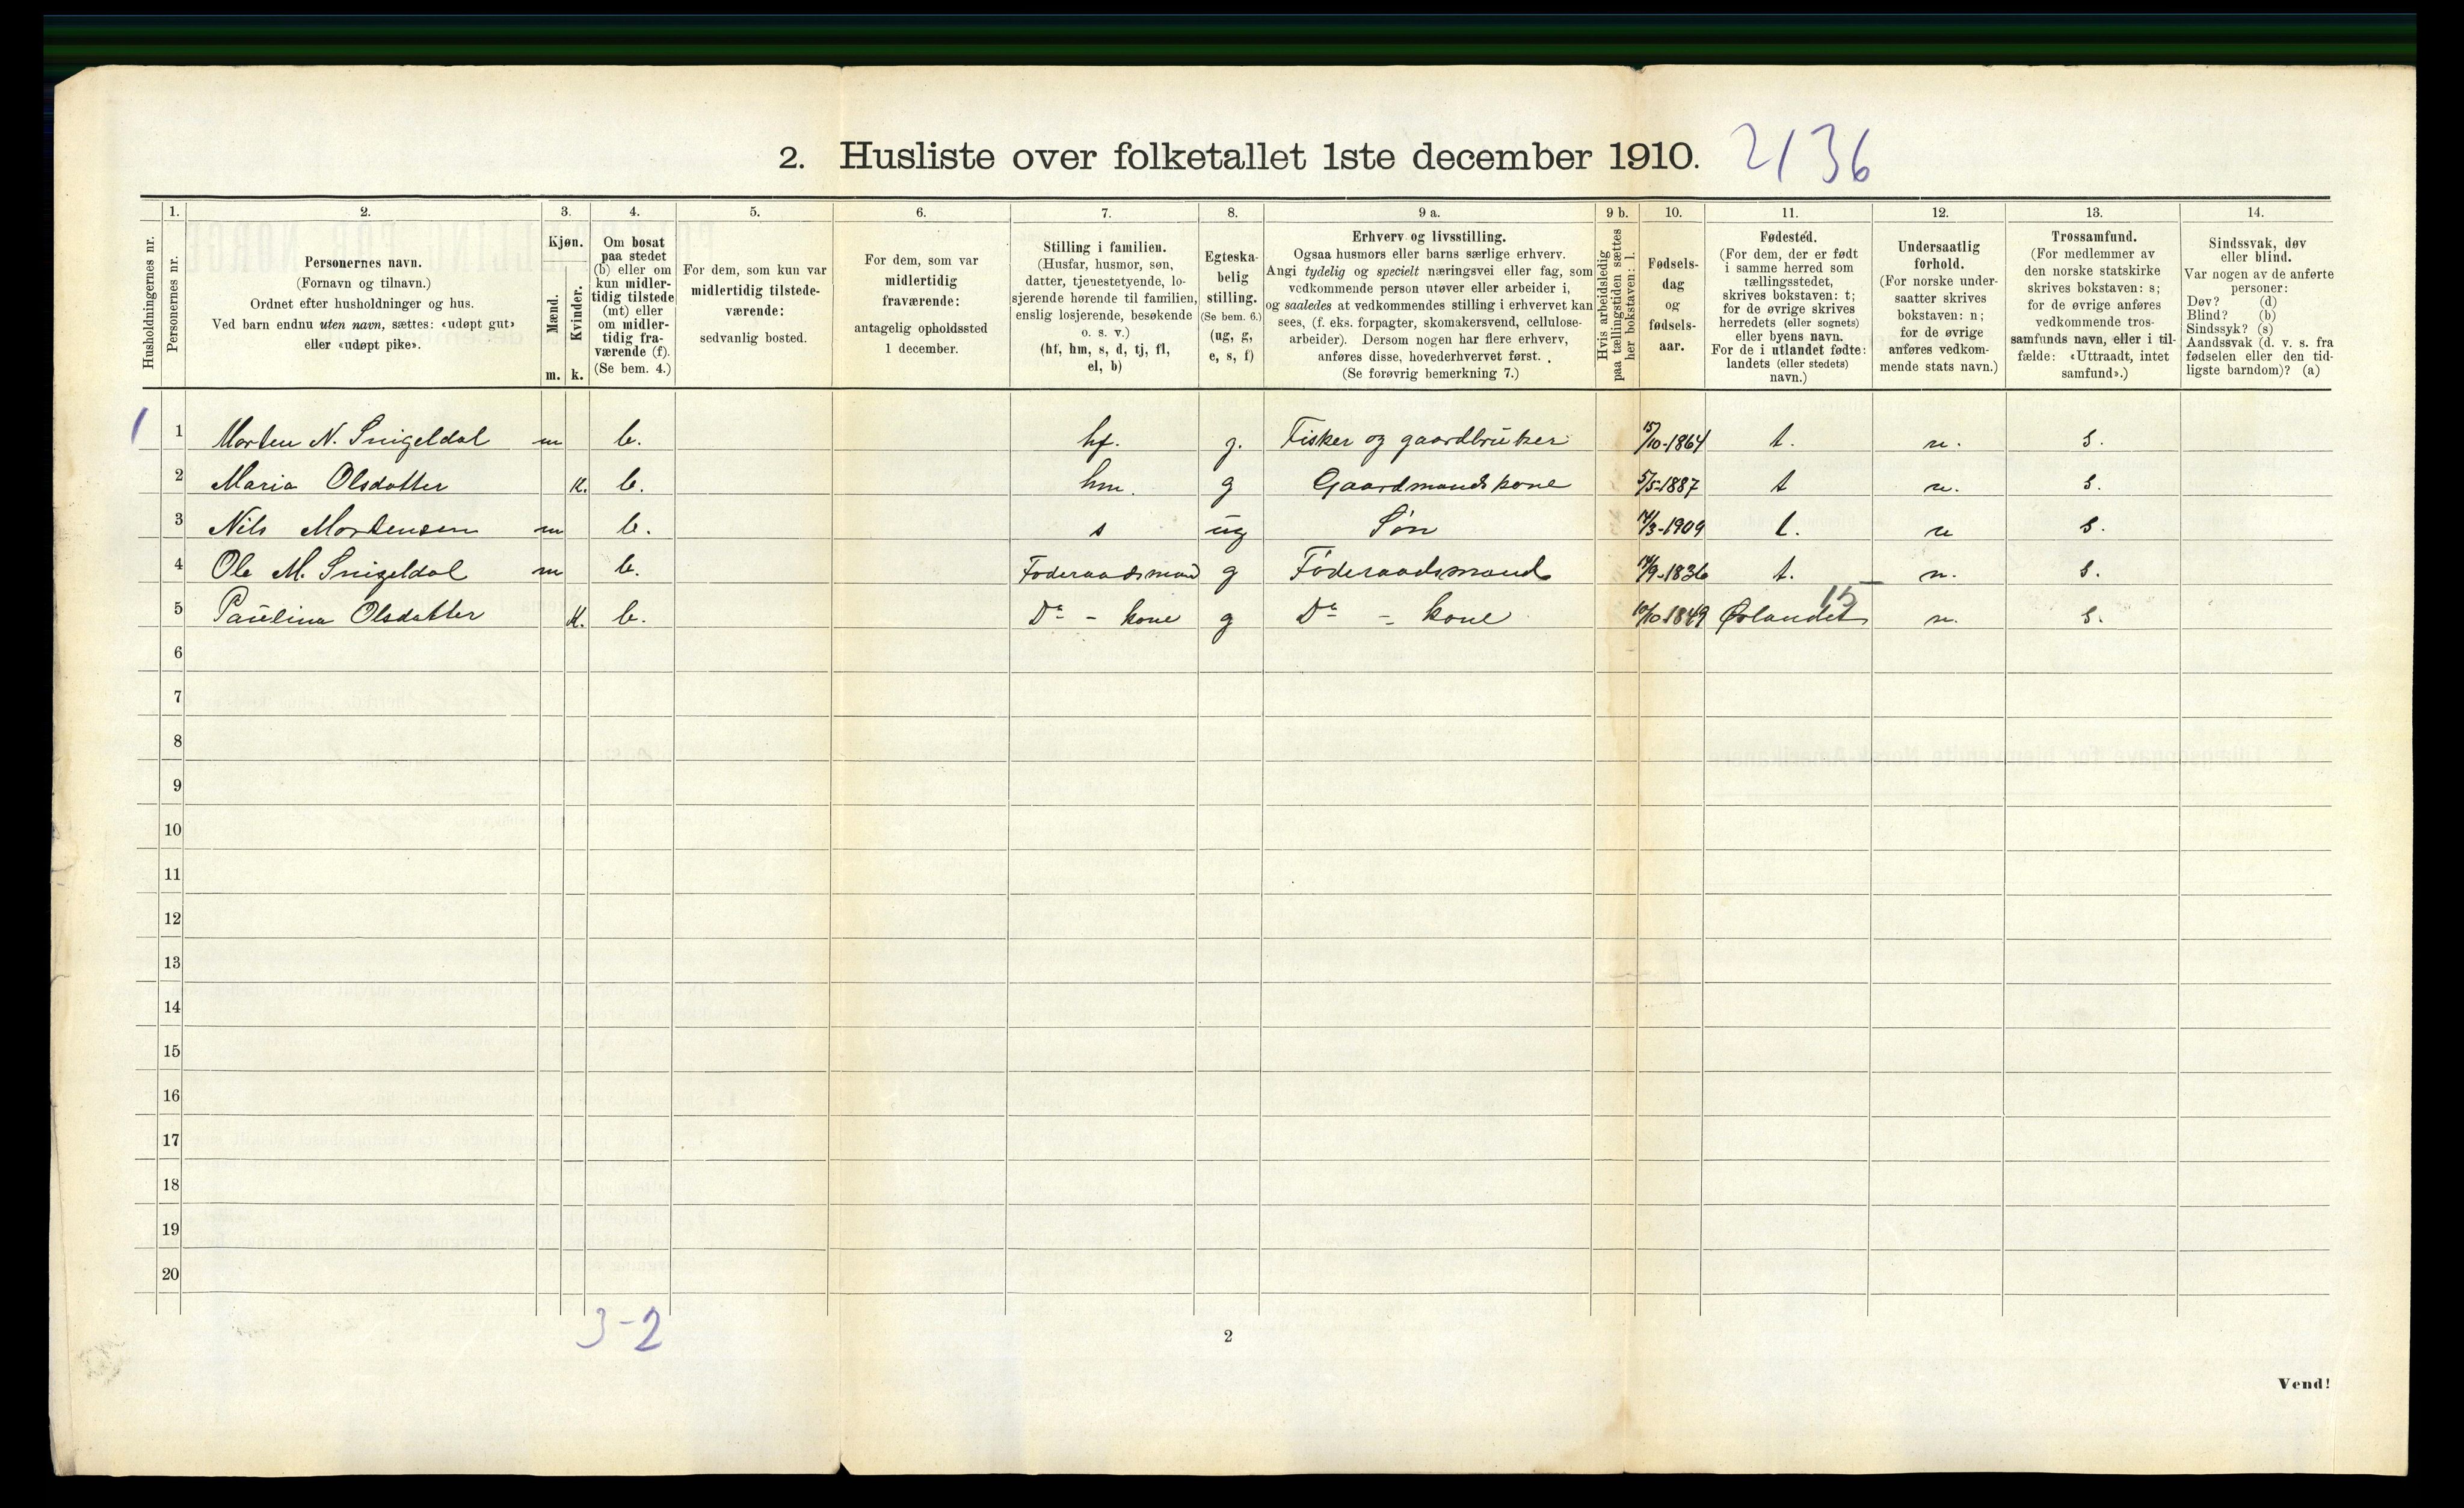 2. Husliste over folketallet 1ste december 1910. 2136
Husholdningernes nr.
1. Personernes nr.
2. Personernes navn. (Fornavn og tilnavn.) Ordnet efter husholdninger og hus. Ved barn endnu uten navn, sættes: «udøpt gut» eller «udøpt pike».
3. Kjøn. Mænd. m. Kvinder. k.
4. Om bosat paa stedet (b) eller om kun midlertidig tilstede (mt) eller om midlertidig fraværende (f). (Se bem. 4.)
5. For dem, som kun var midlertidig tilstedeværende: sedvanlig bosted.
6. For dem, som var midlertidig fraværende: antagelig opholdssted 1 december.
7. Stilling i familien. (Husfar, husmor, søn, datter, tjenestetyende, losjerende hørende til familien, enslig losjerende, besøkende o. s. v.) (hf, hm, s, d, tj, fl, el, b)
8. Egteskabelig stilling. (Se bem. 6.) (ug, g, e, s, f)
9 a. Erhverv og livsstilling. Ogsaa husmors eller barns særlige erhverv. Angi tydelig og specielt næringsvei eller fag, som vedkommende person utøver eller arbeider i, og saaledes at vedkommendes stilling i erhvervet kan sees, (f. eks. forpagter, skomakersvend, cellulosearbeider). Dersom nogen har flere erhverv, anføres disse, hovederhvervet først. (Se forøvrig bemerkning 7.)
9 b. Hvis arbeidsledig paa tællingstiden sættes her bokstaven: l.
10. Fødselsdag og fødselsaar.
11. Fødested. (For dem, der er født i samme herred som tællingsstedet, skrives bokstaven: t; for de øvrige skrives herredets (eller sognets) eller byens navn. For de i utlandet fødte: landets (eller stedets) navn.)
12. Undersaatlig forhold. (For norske undersaatter skrives bokstaven: n; for de øvrige anføres vedkommende stats navn.)
13. Trossamfund. (For medlemmer av den norske statskirke skrives bokstaven: s; for de øvrige anføres vedkommende trossamfunds navn, eller i tilfælde: «Uttraadt, intet samfund».)
14. Sindssvak, døv eller blind. Var nogen av de anførte personer: Døv? (d) Blind? (b) Sindssyk? (s) Aandssvak (d. v. s. fra fødselen eller den tidligste barndom)? (a)
1 1 Morten N. Snigeldal m b. hf. g. Fisker og gaardbruker 15/10-1864 t. n. s.
2 Maria Olsdatter k. b. hm. g Gaardmandskone 5/5-1887 t n. s.
3 Nils Mortensen m b. s ug Søn 14/3-1909 t. n s.
4 Ole M. Snigeldal m b. Føderaadsmand g Føderaadsmand 14/9-1836 t. n. s.
15
5 Paulina Olsdatter k. b. Do - kone g Do - kone 10/10-1849 Ørlandet n. s.
6
7
8
9
10
11
12
13
14
15
16
17
18
19
20
3-2
2
Vend!